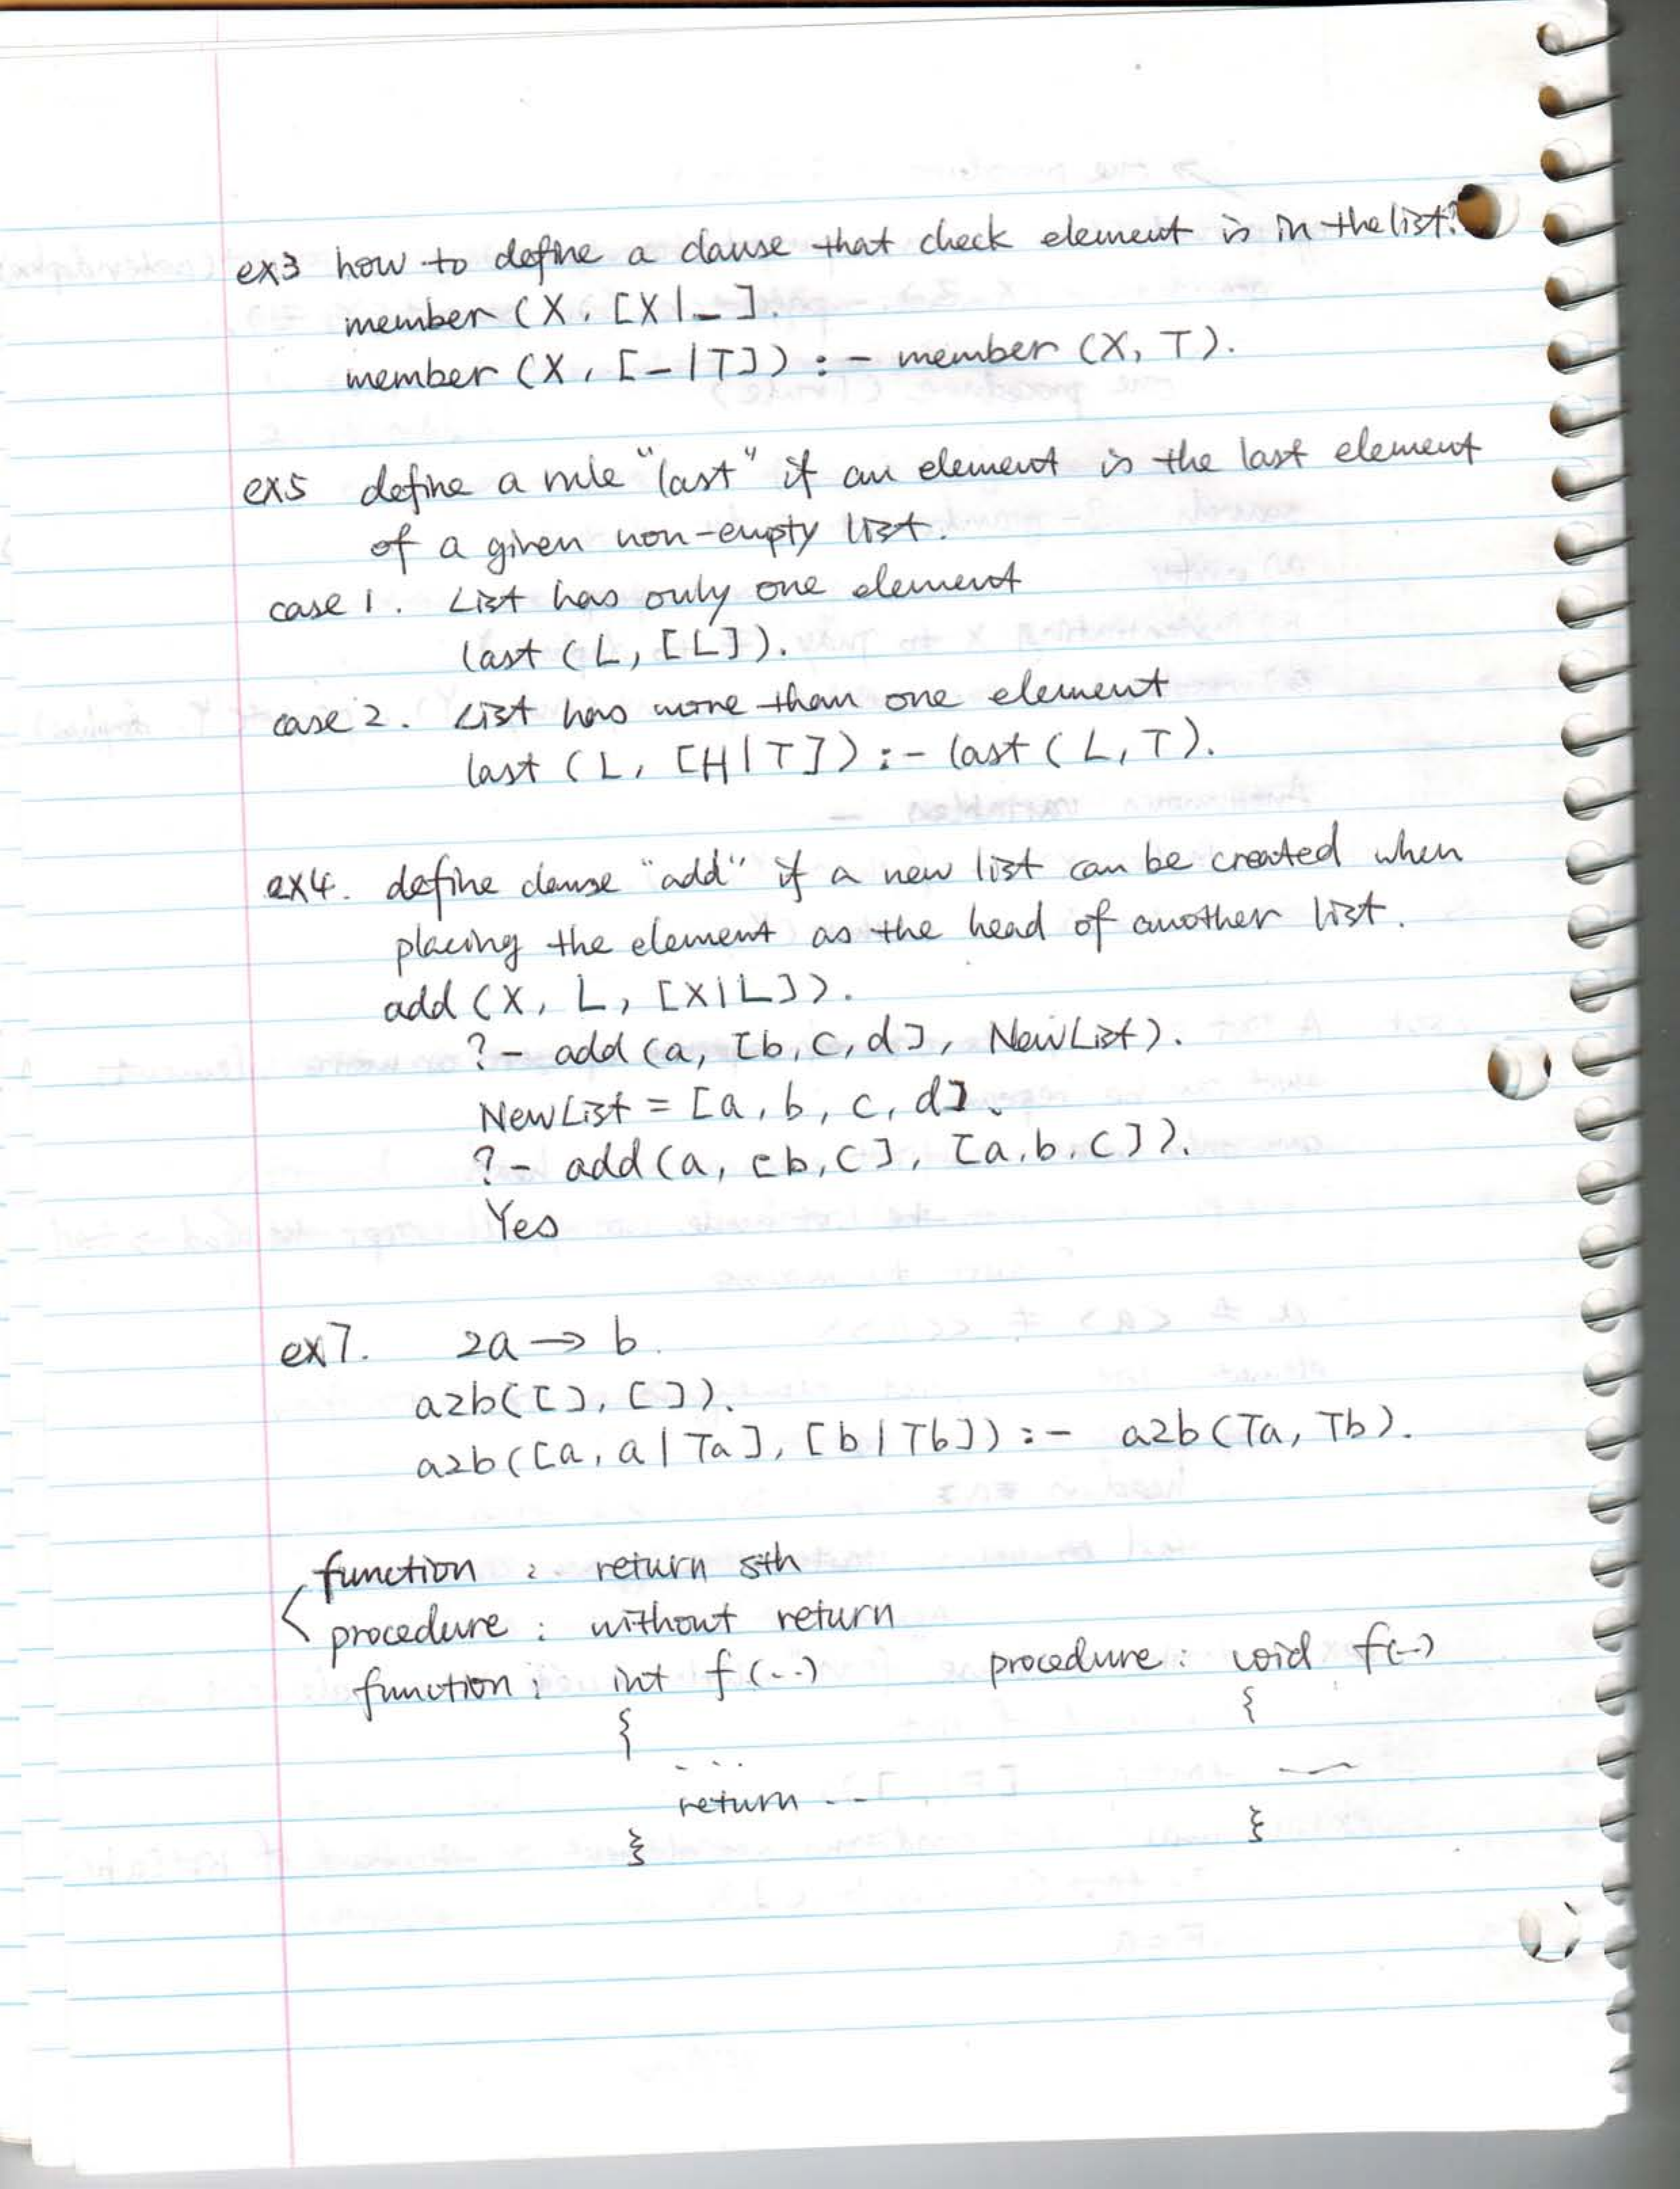 ex3 how to define a clause that check element is in the list?
member (X, [X|_].
member (X, [_|T]) :- member (X, T).
ex5 define a rule "last" if an element is the last element
of a given non-empty list.
case 1. List has only one element
last (L, [L]).
case 2. List has more than one element
last (L, [H|T]) :- last (L, T).
ex4. define clause "add" if a new list can be created when
placing the element as the head of another list.
add (X, L, [X|L]).
?- add (a, [b, c, d], NewList).
NewList = [a, b, c, d].
?- add (a, [b, c], [a, b, c]).
Yes
ex7. 2a → b.
a2b([], []).
a2b([a, a | Ta], [b | Tb]) :- a2b (Ta, Tb).
function : return sth
procedure : without return
function : int f (..) procedure : void f(..)
{ {
...
return ..
} }